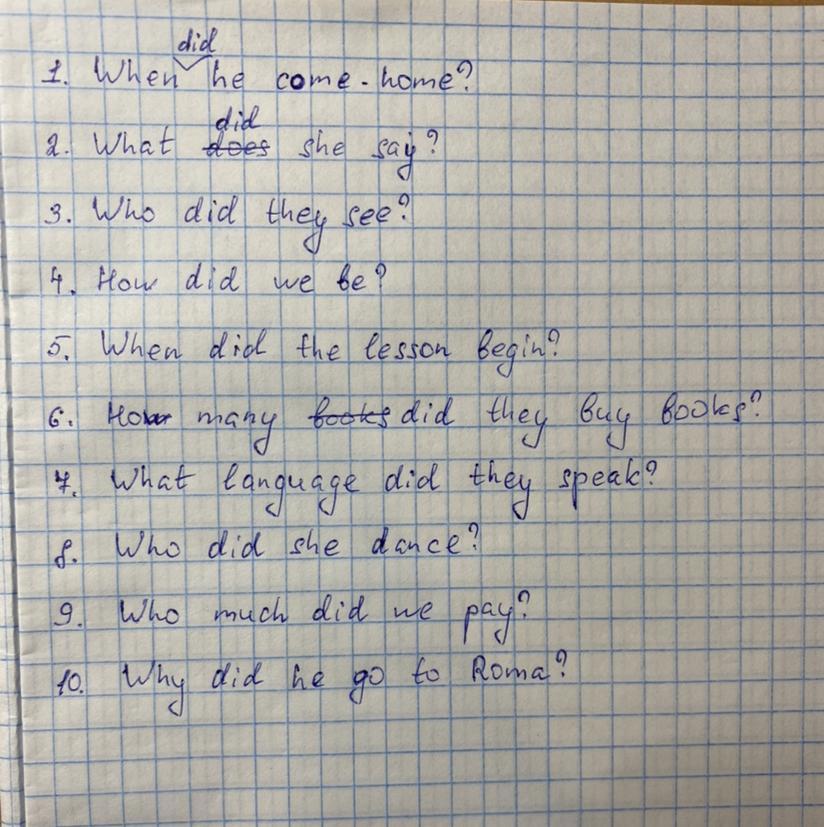 did
1. When he come - home?
did
2. What does she say?
3. Who did they see?
4. How did we be?
5. When did the lesson begin?
6. How many books did they buy books?
7. What language did they speak?
8. Who did she dance?
9. Who much did we pay?
10. Why did he go to Roma?